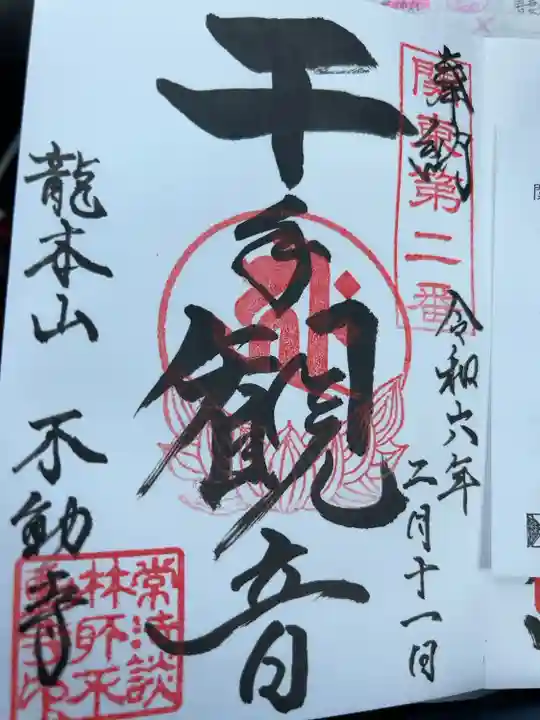 奉納
關東第二番
令和六年
二月十一日
千手觀音
龍本山 不動寺
常法談
林師不